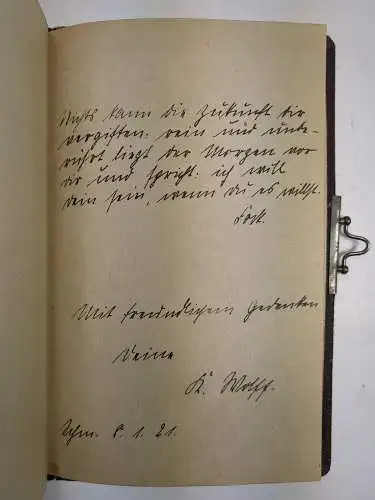 Nichts kann die Zukunft dir
vergiften: rein und unbe-
rührt liegt der Morgen vor
dir und spricht: ich will
dein sein, wenn du es willst.
Fock.
Mit freundlichem Gedenken
Deine
K. Wolff.
1. 21.